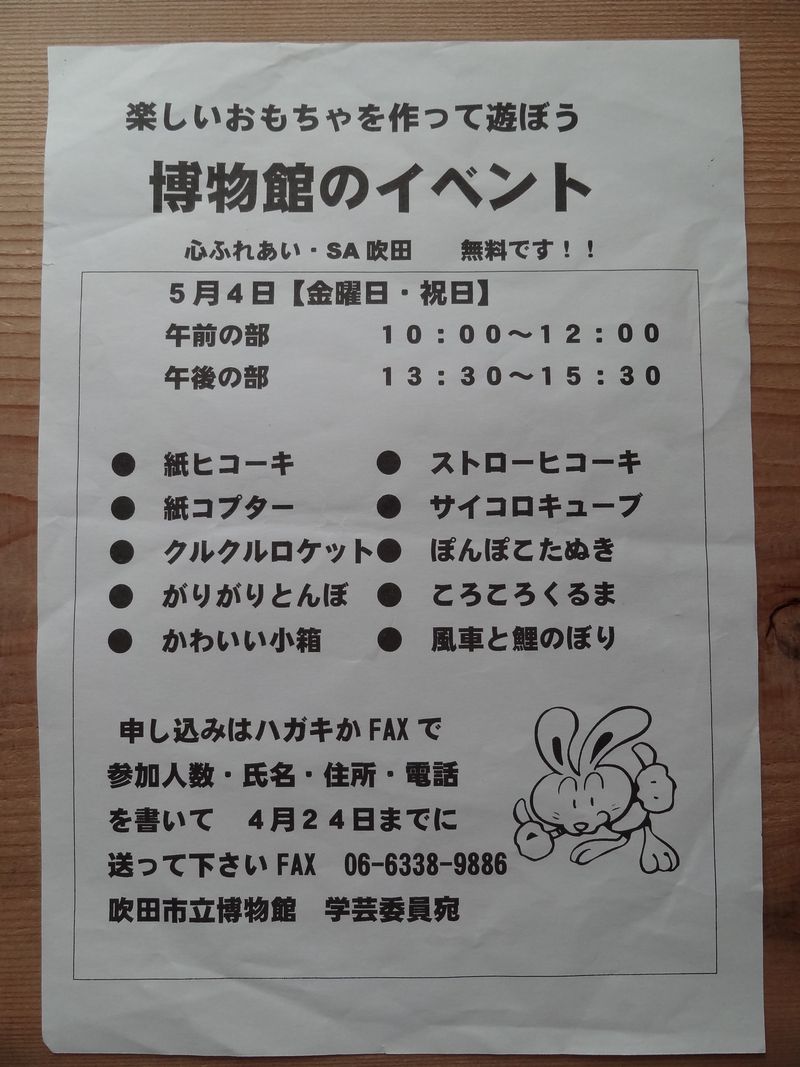 楽しいおもちゃを作って遊ぼう
博物館のイベント
心ふれあい・SA吹田　　無料です！！
５月４日【金曜日・祝日】
午前の部　　　　１０：００～１２：００
午後の部　　　　１３：３０～１５：３０
●　紙ヒコーキ　　　●　ストローヒコーキ
●　紙コプター　　　●　サイコロキューブ
●　クルクルロケット●　ぽんぽこたぬき
●　がりがりとんぼ　●　ころころくるま
●　かわいい小箱　　●　風車と鯉のぼり
申し込みはハガキかFAXで
参加人数・氏名・住所・電話
を書いて　４月２４日までに
送って下さいFAX　06-6338-9886
吹田市立博物館　学芸委員宛